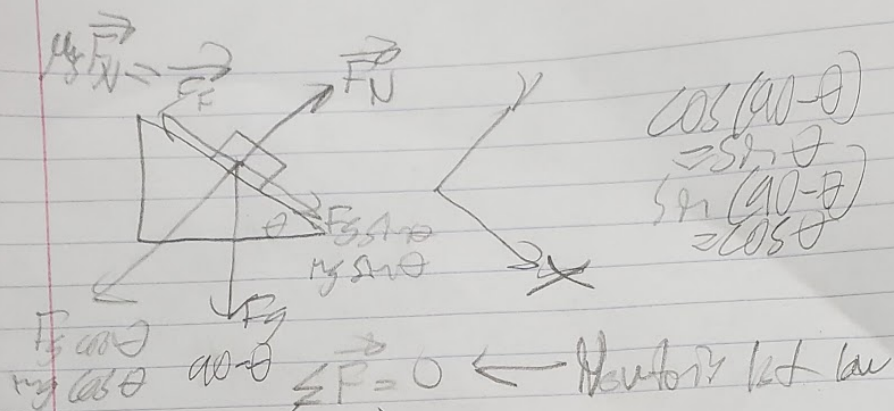 μsF⃗N = F⃗F
F⃗N
y
cos(90-θ)
=sinθ
sin(90-θ)
=cosθ
θ
Fgsinθ
mg sinθ
x
Fg
Fg cosθ
mg cosθ
90-θ
ΣF⃗ = 0 ← Newton's 1st law